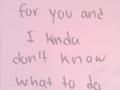 for you and
I kinda
don't know
what to do